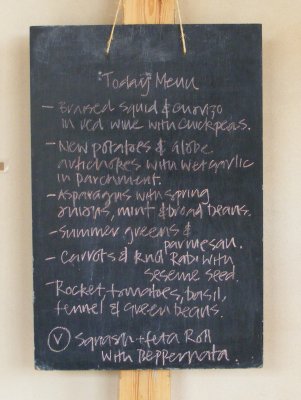 "Today" Menu
- Braised squid & chorizo
in red wine with chickpeas.
- New potatoes & globe
artichokes with wet garlic
in parchment.
- Asparagus with spring
onions, mint & broad beans.
- Summer greens &
parmesan.
- Carrots & Knol Rabi with
seseme seed.
- Rocket, tomatoes, basil,
fennel & green beans.
V Squash + feta Roll
with Peppernata.